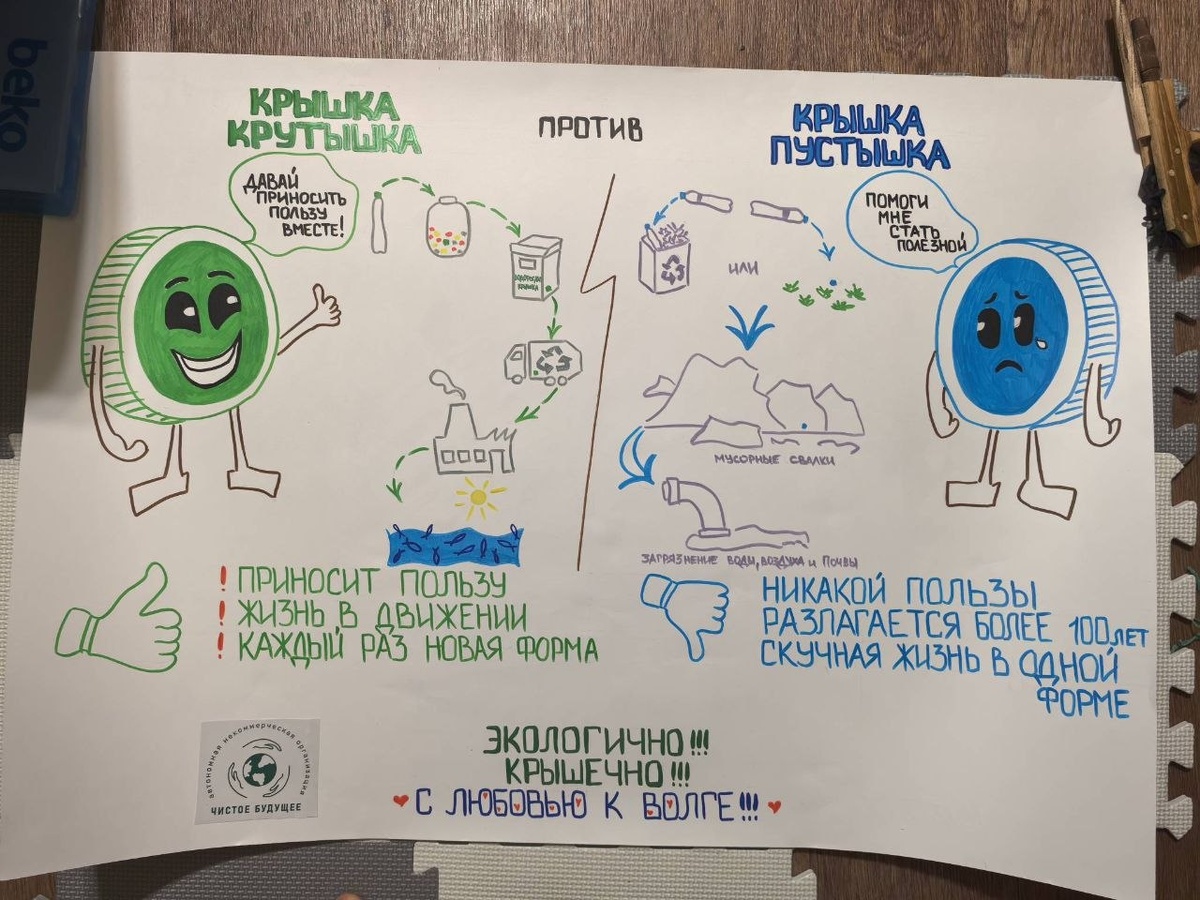 beko
КРЫШКА
КРУТЫШКА
ПРОТИВ
КРЫШКА
ПУСТЫШКА
ДАВАЙ
ПРИНОСИТЬ
ПОЛЬЗУ
ВМЕСТЕ!
ПОМОГИ
МНЕ
СТАТЬ
ПОЛЕЗНОЙ
ИЛИ
МУСОРНЫЕ СВАЛКИ
ЗАГРЯЗНЕНИЕ ВОДЫ, ВОЗДУХА и ПОЧВЫ
! ПРИНОСИТ ПОЛЬЗУ
! ЖИЗНЬ В ДВИЖЕНИИ
! КАЖДЫЙ РАЗ НОВАЯ ФОРМА
НИКАКОЙ ПОЛЬЗЫ
РАЗЛАГАЕТСЯ БОЛЕЕ 100 ЛЕТ
СКУЧНАЯ ЖИЗНЬ В ОДНОЙ
ФОРМЕ
автономная некоммерческая организация
ЧИСТОЕ БУДУЩЕЕ
ЭКОЛОГИЧНО!!!
КРЫШЕЧНО!!!
С ЛЮБОВЬЮ К ВОЛГЕ!!!